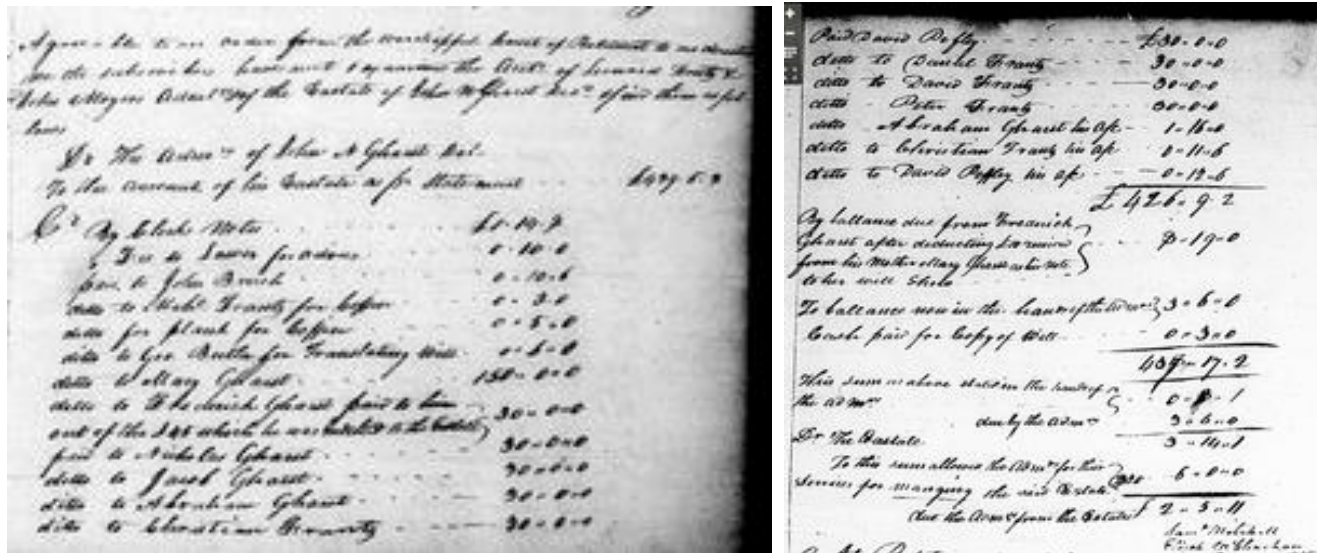 Agreeable to an order from the worshipful Court of Botetourt to us directed
we the subscribers have met & examined the Acts. of Leonard Frantz &
John Moyers Adms. of the Eastate of John N Gharst Decd. & find them as fol-
lows
Dr The Admrs of John N Gharst Dcd.
To the amount of his Eastate as pr Statement £439.5.3
Cr By Clerks Notes £1-14-7
0-10-0
paid to John 0-10-6
ditto to Frantz for Coffin 0-3-0
ditto for plank for Coffin 0-5-0
ditto to Geo for Translating Will 0-6-0
ditto to Mary Gharst 150-0-0
ditto to Frederick Gharst paid to him
out of the which he was to the Eastate 30-0-0
paid to Nicholas Gharst 30-0-0
ditto to Jacob Gharst 30-0-0
ditto to Abraham Gharst 30-0-0
ditto to Christian Frantz 30-0-0
Paid David Pefley £30-0-0
ditto to Daniel Frantz 30-0-0
ditto to David Frantz 30-0-0
ditto Peter Frantz 30-0-0
ditto Abraham Gharst his Apt 1-16-0
ditto to Christian Frantz his Apt 0-11-6
ditto to David Peffley his Apt 0-12-6
£426-9-2
By ballance due from Fredrick
Gharst after deducting 8-19-0
from his Mother Mary Gharst as his note
to her will Shew
To ballance now in the hands of the Admrs 3-6-0
Cash paid for Copy of Will 0-3-0
17-2
This sum as above stated in the hands of
the admrs 0-8-1
due by the Admrs 3-6-0
Dr The Eastate 3-14-1
To this sum allowed the Admrs for their
Services for manging the said Estate 6-0-0
due the Admrs from the Estate £2-5-11
Saml Mitchell